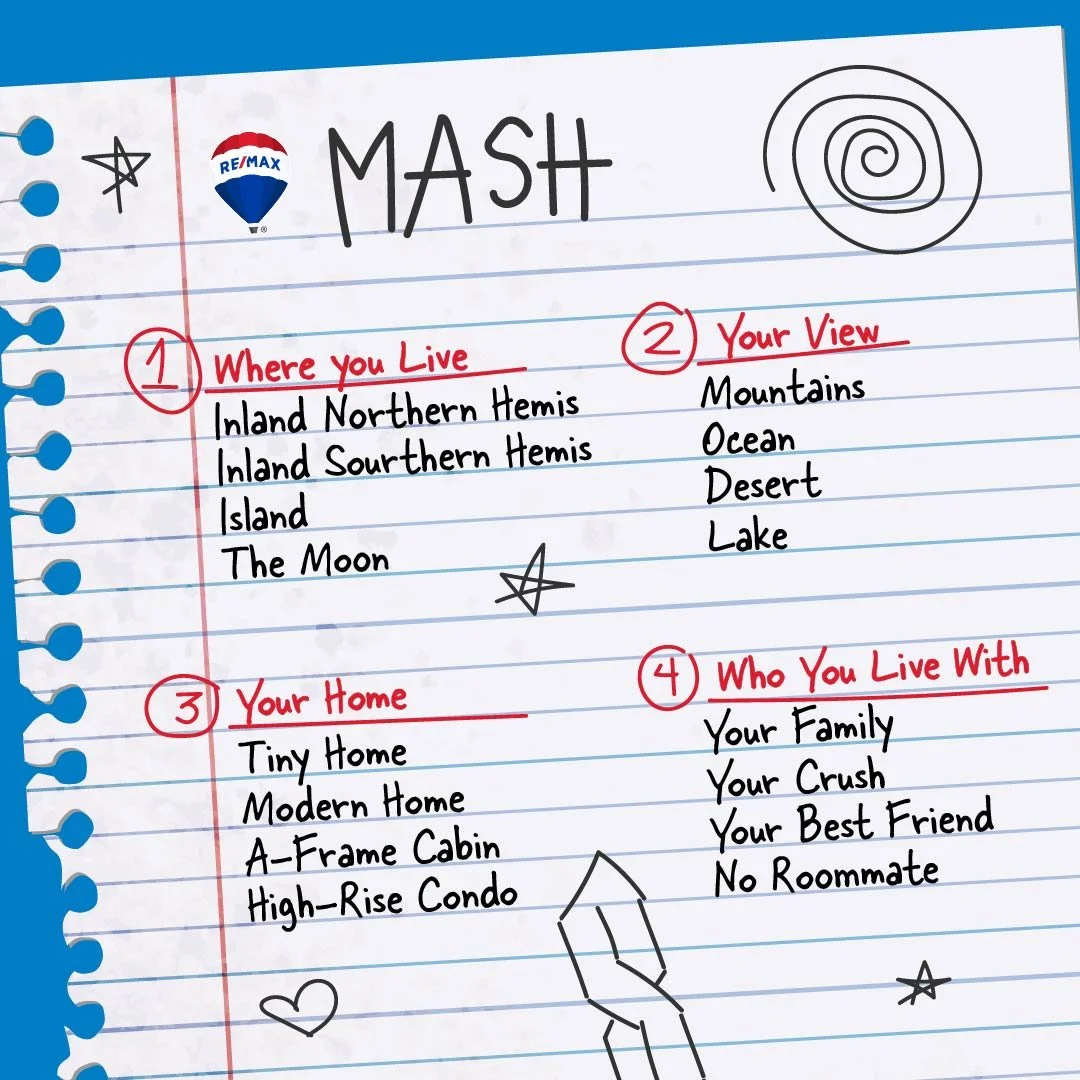 RE/MAX MASH
1 Where you Live
Inland Northern Hemis
Inland Sourthern Hemis
Island
The Moon
2 Your View
Mountains
Ocean
Desert
Lake
3 Your Home
Tiny Home
Modern Home
A-Frame Cabin
High-Rise Condo
4 Who You Live With
Your Family
Your Crush
Your Best Friend
No Roommate